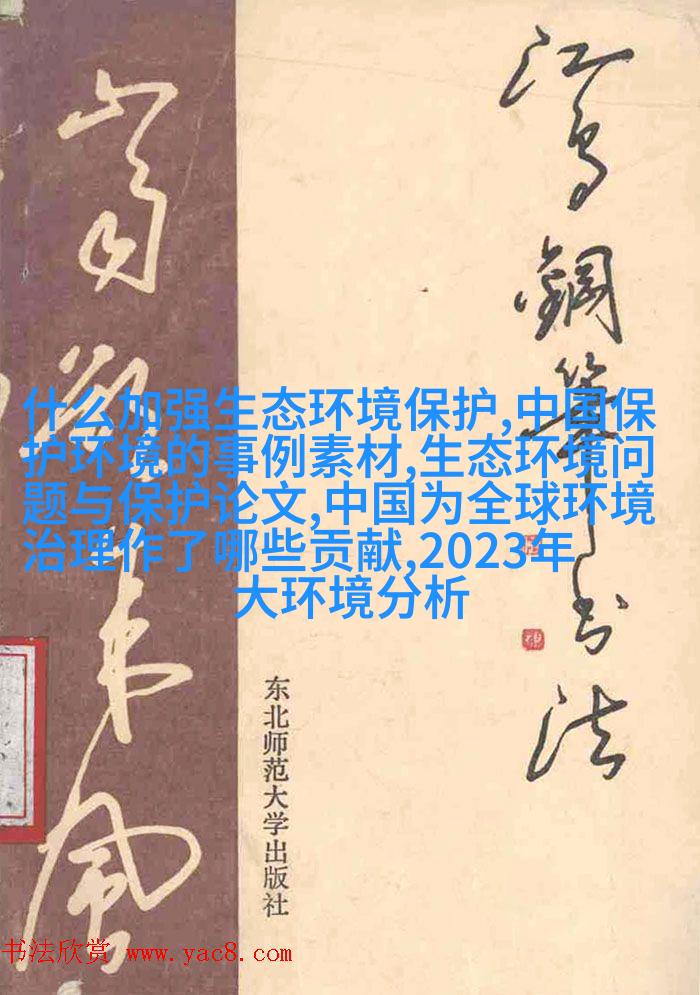 江鸟鋼筆书法
什么加强生态环境保护,中国保
护环境的事例素材,生态环境问
题与保护论文,中国为全球环境
治理作了哪些贡献,2023年
大环境分析
东北师范大学出版社
书法欣赏 www.yac8.com